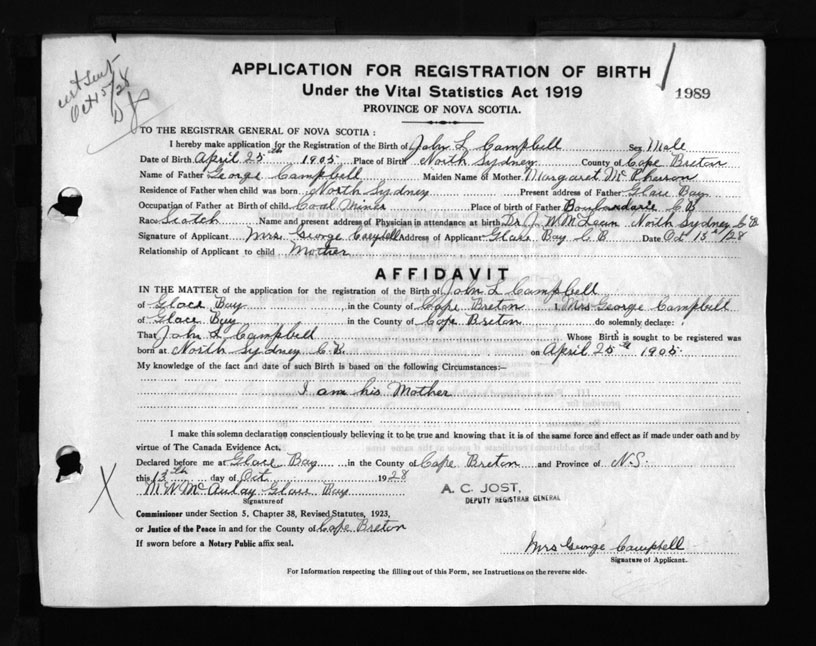 cert sent
Oct 15/28
APPLICATION FOR REGISTRATION OF BIRTH
1989
Under the Vital Statistics Act 1919
PROVINCE OF NOVA SCOTIA.
TO THE REGISTRAR GENERAL OF NOVA SCOTIA:
I hereby make application for the Registration of the Birth of John L Campbell Sex Male
Date of Birth April 25th 1905 Place of Birth North Sydney County of Cape Breton
Name of Father George Campbell Maiden Name of Mother Margaret McPherson
Residence of Father when child was born North Sydney Present address of Father Glace Bay
Occupation of Father at Birth of child Coal Miner Place of birth of Father Boulardarie C.B
Race Scotch Name and present address of Physician in attendance at birth Dr J. W. McLean North Sydney C.B.
Signature of Applicant Mrs. George Campbell Address of Applicant Glace Bay C B Date Oct 13th/28
Relationship of Applicant to child Mother
AFFIDAVIT
IN THE MATTER of the application for the registration of the Birth of John L Campbell
of Glace Bay in the County of Cape Breton I, Mrs George Campbell
of Glace Bay in the County of Cape Breton do solemnly declare:
That John L Campbell Whose Birth is sought to be registered was
born at North Sydney C.B. on April 25th 1905.
My knowledge of the fact and date of such Birth is based on the following Circumstances:—
I am his Mother
I make this solemn declaration conscientiously believing it to be true and knowing that it is of the same force and effect as if made under oath and by
virtue of The Canada Evidence Act.
Declared before me at Glace Bay in the County of Cape Breton and Province of N.S.
this 13th day of Oct 1928
M. W. McAulay Glace Bay
A. C. JOST,
DEPUTY REGISTRAR GENERAL
Signature of
Commissioner under Section 5, Chapter 38, Revised Statutes, 1923,
or Justice of the Peace in and for the County of Cape Breton
If sworn before a Notary Public affix seal.
Mrs George Campbell
Signature of Applicant.
For Information respecting the filling out of this Form, see Instructions on the reverse side.